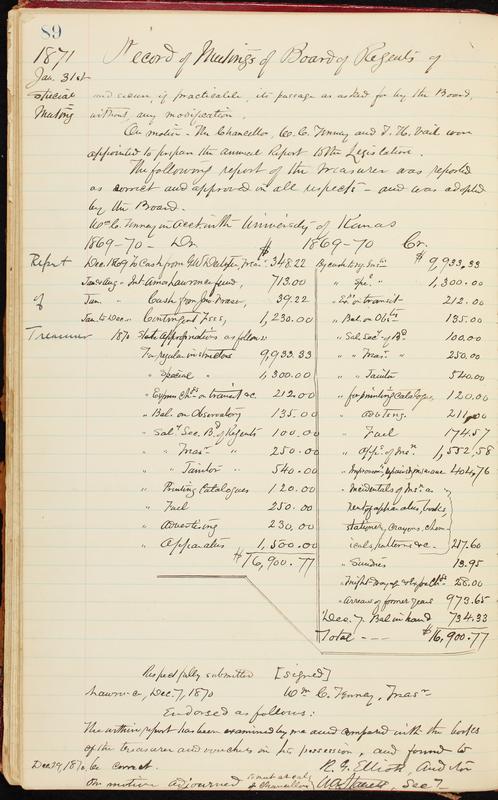 89
1871 Record of Meetings of Board of Regents of
Jan. 31st
Special and secure, if practicable, its passage as asked for by the Board,
Meeting without any modification.
On motion - The Chancellor, W. C. Tenney and were
appointed to prepare the annual Report to the Legislature.
The following report of the Treasurer was reported
as correct and approved in all respects - and was adopted
by the Board.
Wm C. Tenney in acct with University of Kansas
1869-70 - Dr. $ 1869-70 Cr.
Report Dec. 1869 To Cash from Treas. 348.22 By cash $ 9,933.33
Int. Lawrence fund, 713.00 " Spe. " 1,300.00
of Jan. Cash from Jno. Fraser, 39.22 " in transit 212.00
Jan. to Dec. Contingent Fees, 1,230.00 " Bal. on 135.00
Treasurer 1870 State Appropriations as follows " Sal. Sec. of Bd 100.00
For regular instructors 9,933.33 " " Treas. " 250.00
" Special " 1,300.00 " " Janitor 540.00
" on transit &c. 212.00 " for printing Catalogs. 120.00
" Bal. on Observatory 135.00 " adv'tsng. 211.00
" Saly Sec. Bd of Regents 100.00 " Fuel 174.57
" " Treas. " 250.00 " App. of 1,552.58
" " Janitor " 540.00 " repairs & insurance 404.76
" Printing Catalogues 120.00 " Incidentals of
" Fuel 250.00 apparatus, books,
" Advertising 230.00 stationery, crayons, chem-
" Apparatus 1,500.00 icals, &c. 217.60
$ 16,900.77 " Sundries 13.95
258.00
" Arrears of former years 973.65
Dec. 7. Bal in hand 734.33
Total --- $ 16,900.77
Respectfully submitted [signed]
Lawrence, Dec. 7, 1870 Wm C. Tenney, Treasr
Endorsed as follows:
The within report has been examined by me and compared with the books
of the treasurer and vouchers in his possession, and found to
Dec. 29, 1870. be correct. R. G. Elliott, Auditor
On motion adjourned Secy